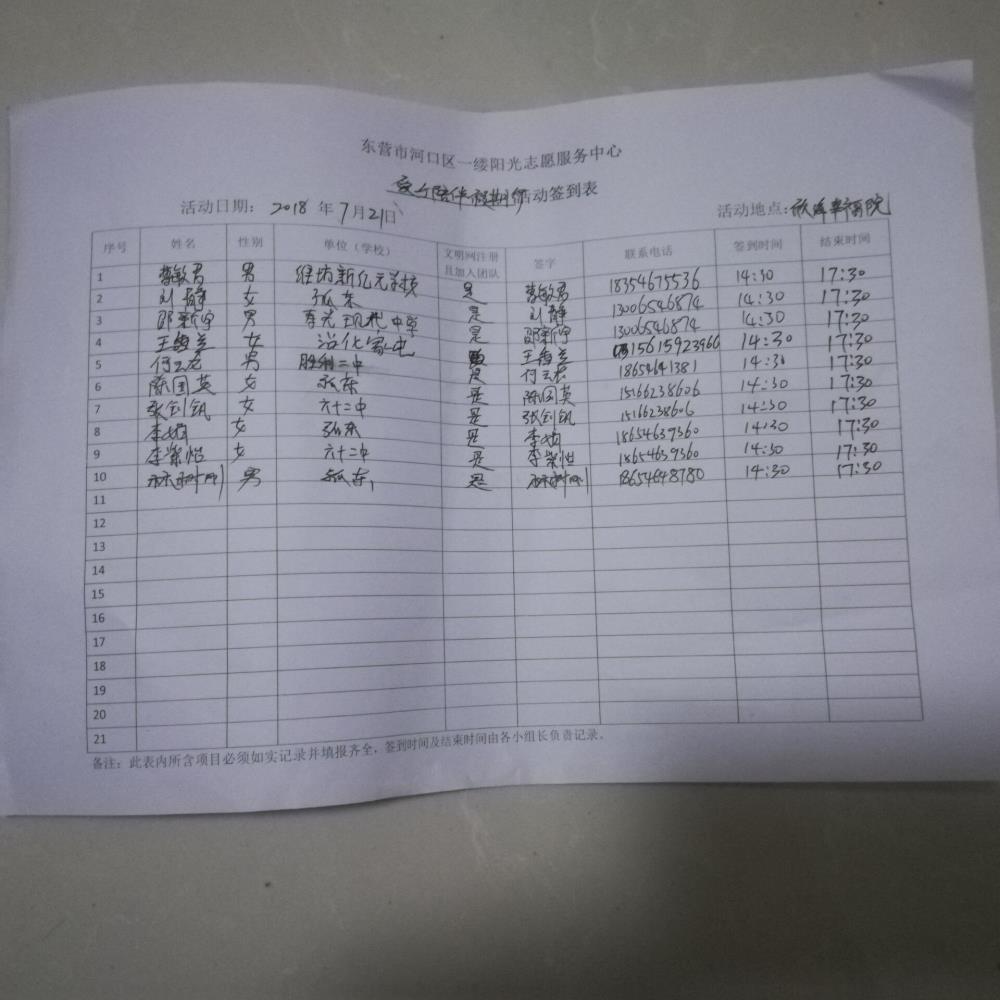 东营市河口区一缕阳光志愿服务中心
陪伴假期 活动签到表
活动日期： 2018 年 7 月 21 日 活动地点: 福院
序号 姓名 性别 单位（学校） 文明网注册且加入团队 签字 联系电话 签到时间 结束时间
1 敏君 男 潍坊新亿元学校 是 敏君 18354675536 14:30 17:30
2 刘静 女 孤东 是 刘静 13006546874 14:30 17:30
3 邵新宇 男 寿光现代中学 是 邵新宇 13006546874 14:30 17:30
4 王 女 沾化 中 王 15615923966 14:30 17:30
5 何云龙 男 胜利二中 是 何云龙 1865461381 14:30 17:30
6 陈国英 女 孤东 是 陈国英 15166238606 14:30 17:30
7 张剑钒 女 六十二中 是 张剑钒 15166238606 14:30 17:30
8 李娟 女 孤东 是 李娟 18654639360 14:30 17:30
9 李紫怡 女 六十二中 是 李紫怡 18654639360 14:30 17:30
10 林树刚 男 孤东 是 林树刚 18654648780 14:30 17:30
11
12
13
14
15
16
17
18
19
20
21
备注：此表内所含项目必须如实记录并填报齐全，签到时间及结束时间由各小组长负责记录。